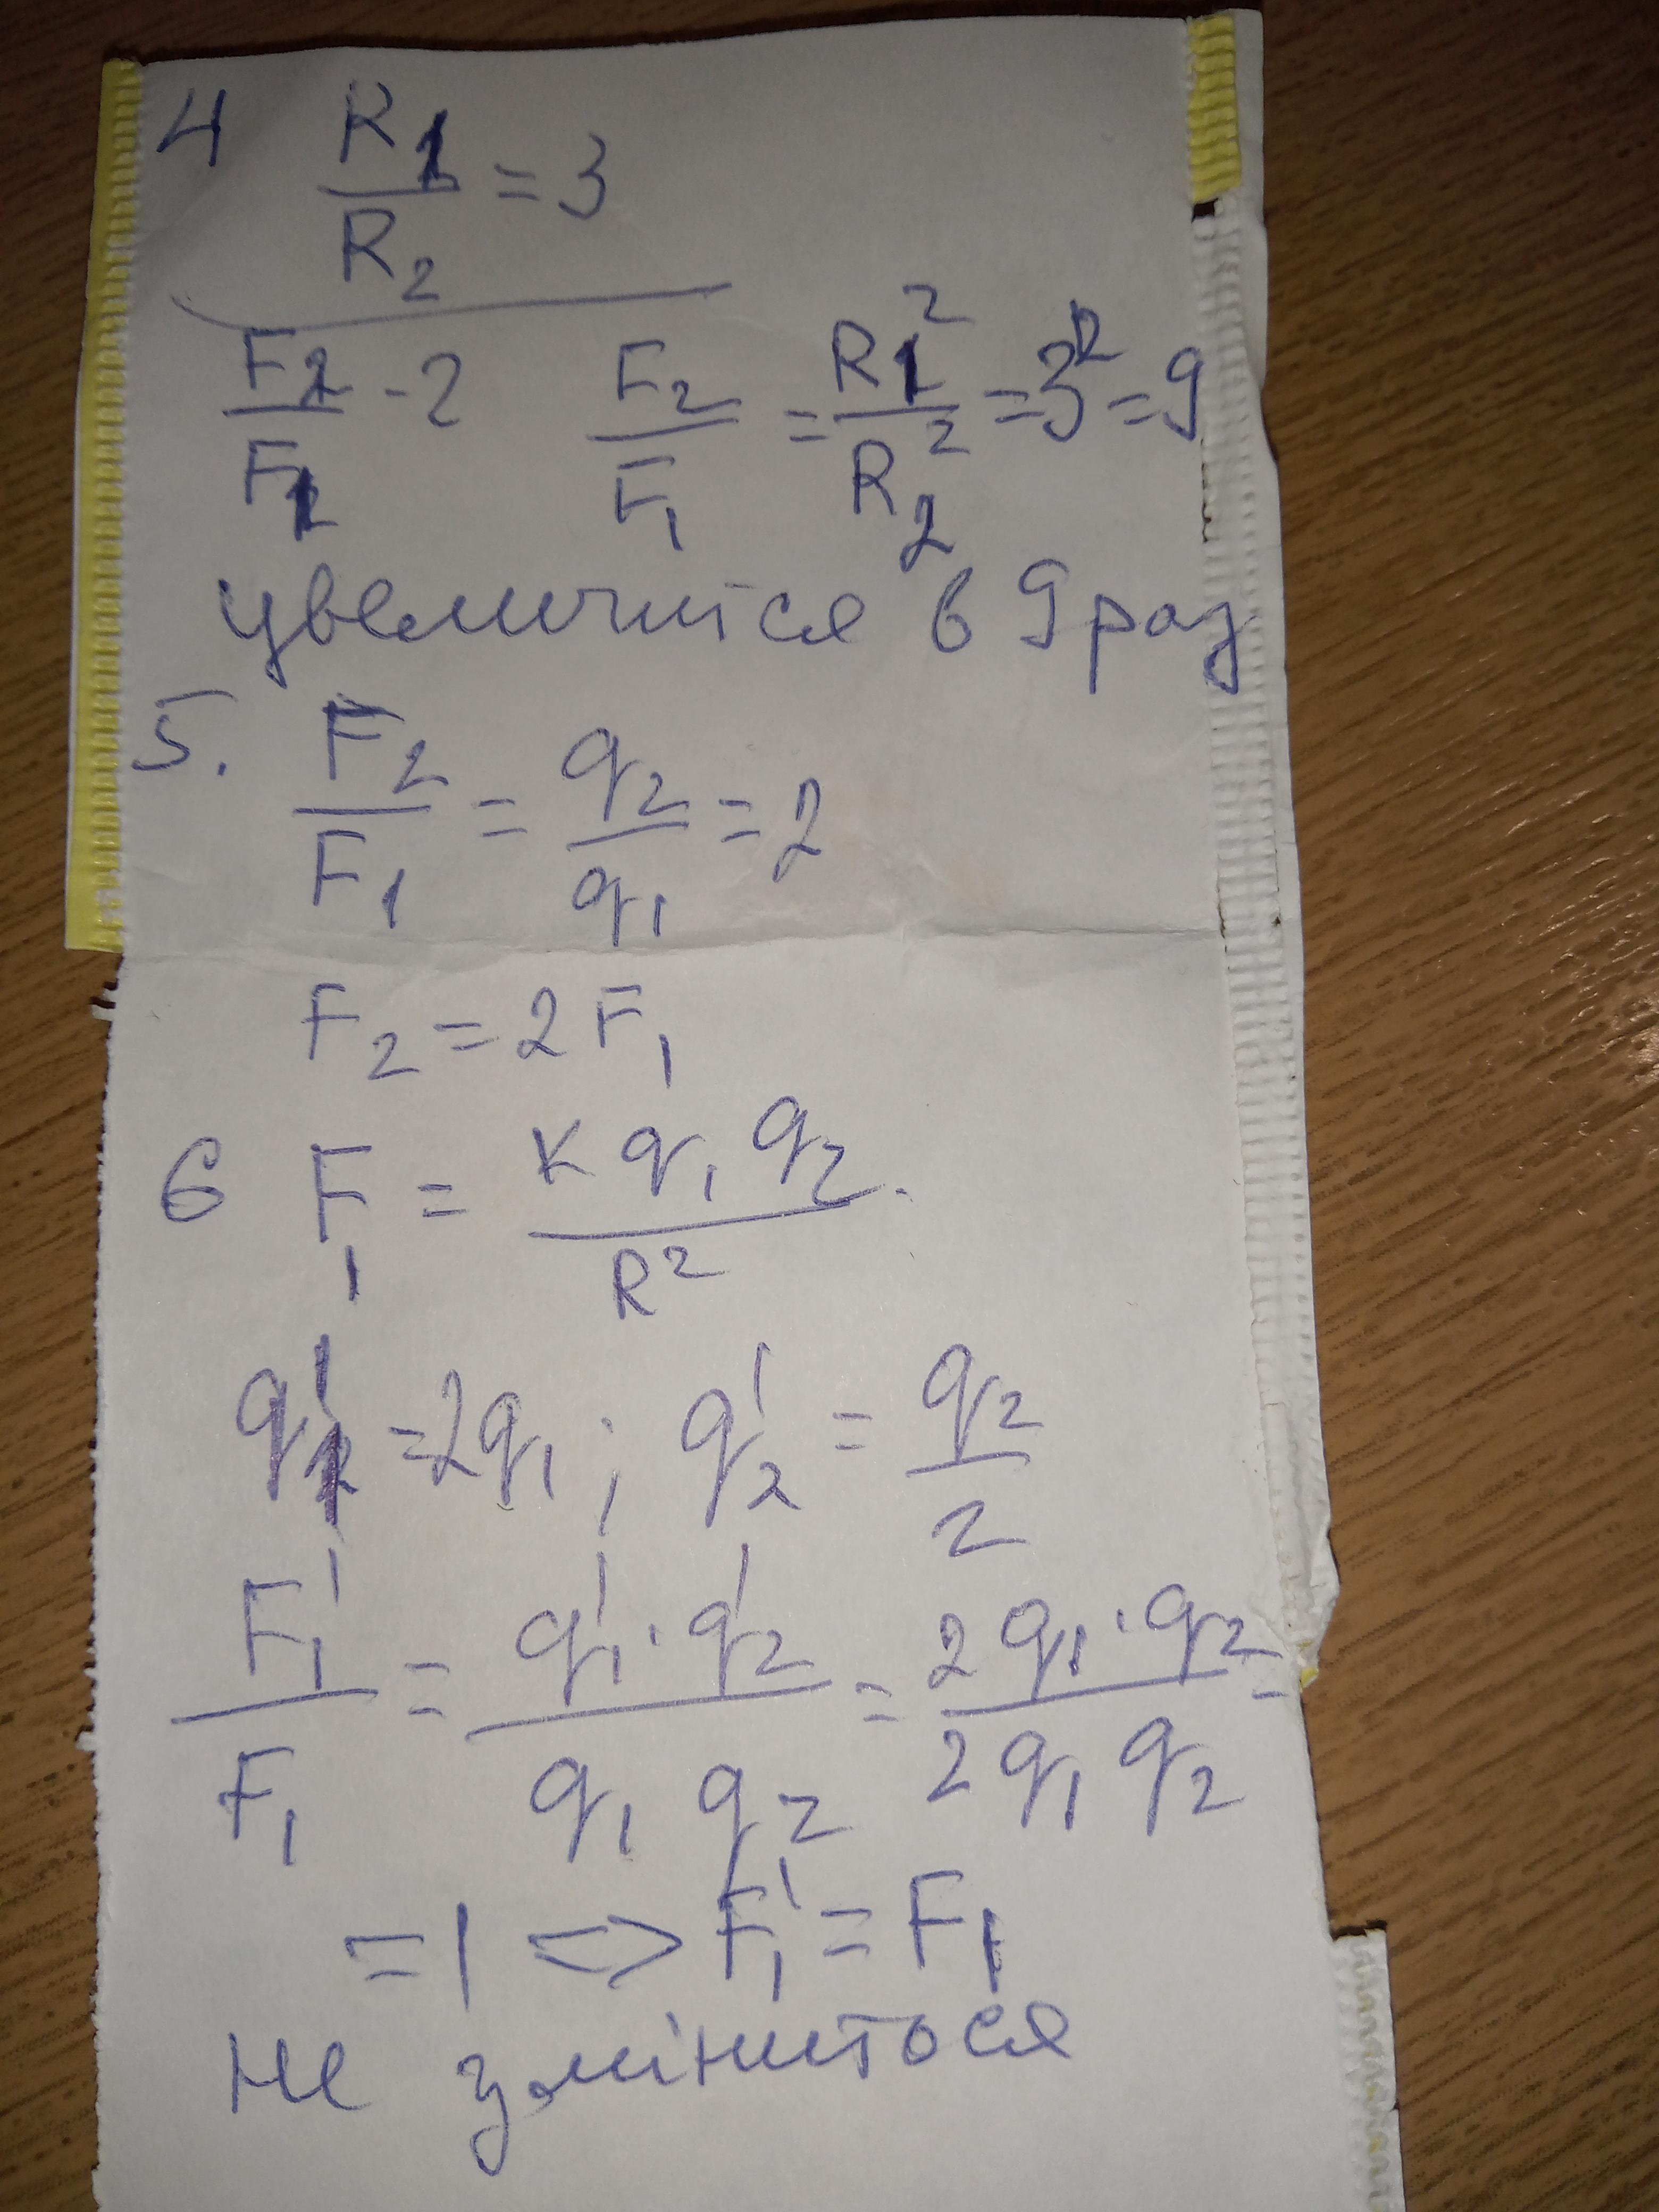 4 R1/R2 = 3
F2/F1 - ? F2/F1 = R1²/R2² = 3² = 9
увеличится в 9 раз
5. F2/F1 = q2/q1 = 2
F2 = 2F1
6 F1 = K q1 q2/R²
q1' = 2q1; q2' = q2/2
F1'/F1 = q1'·q2'/q1 q2 = 2q1·q2/2q1 q2 =
= 1 <=> F1' = F1
не змінитося